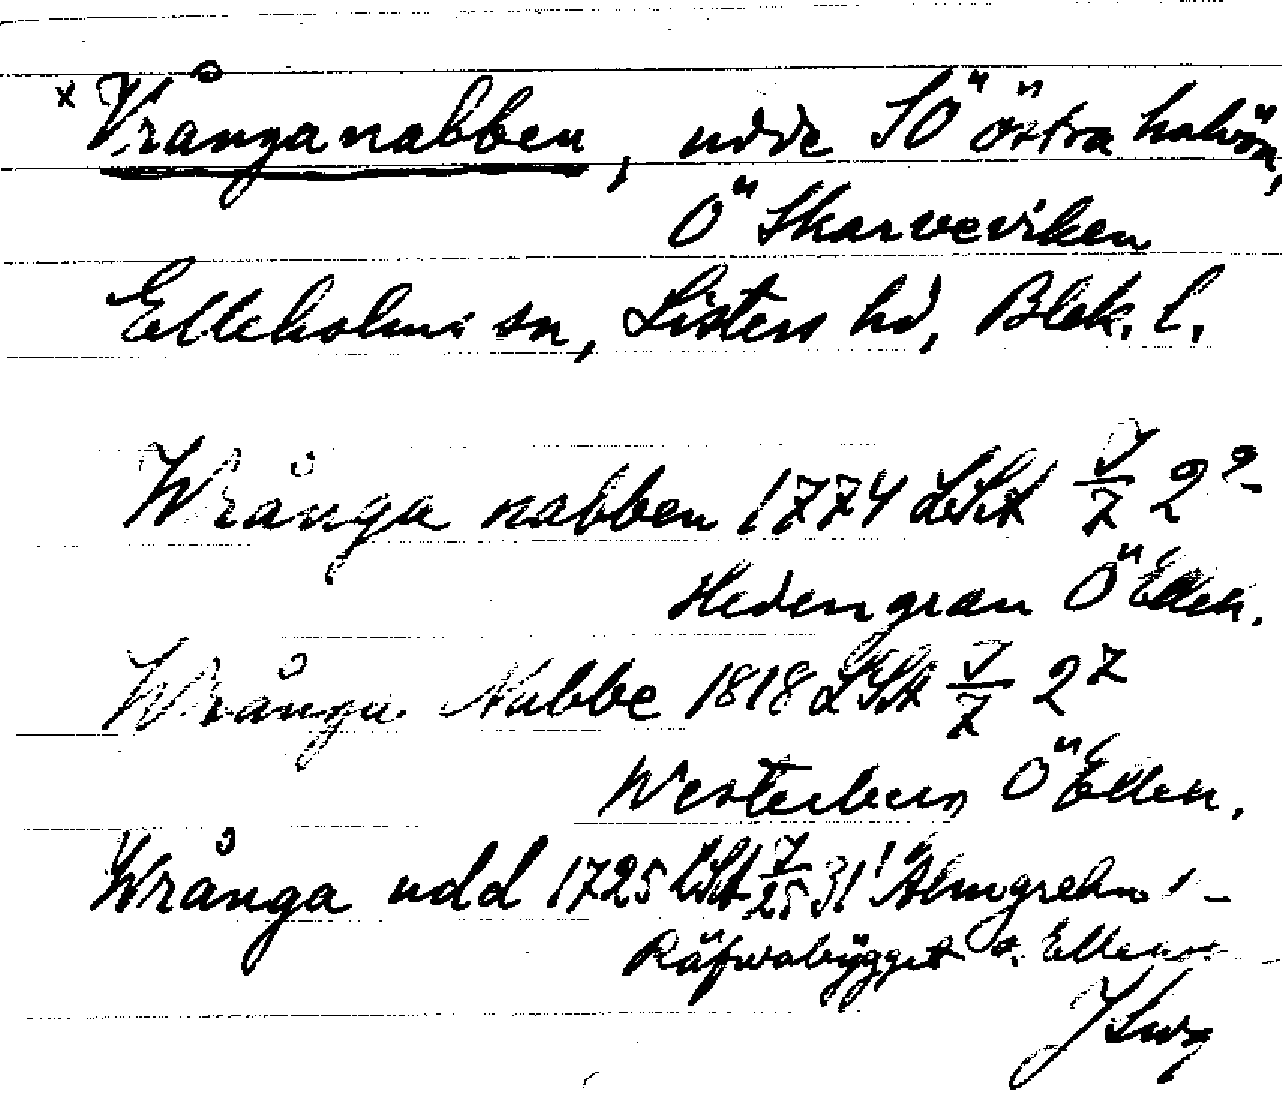 x Vrånganabben, udde SÖ östra halvön,
Ö Skarveviken
Elleholms sn, Listers hd, Blek. l.
Wrånga nabben 1774 LSA J/7 2²
Hedengran Ö Ellen.
Wrånga Nabbe 1818 LSA J/7 2
Westerberg Ö Ellen.
Wrånga udd 1725 LSA 31 Almgrehn
Räfwabygget o. Ellen